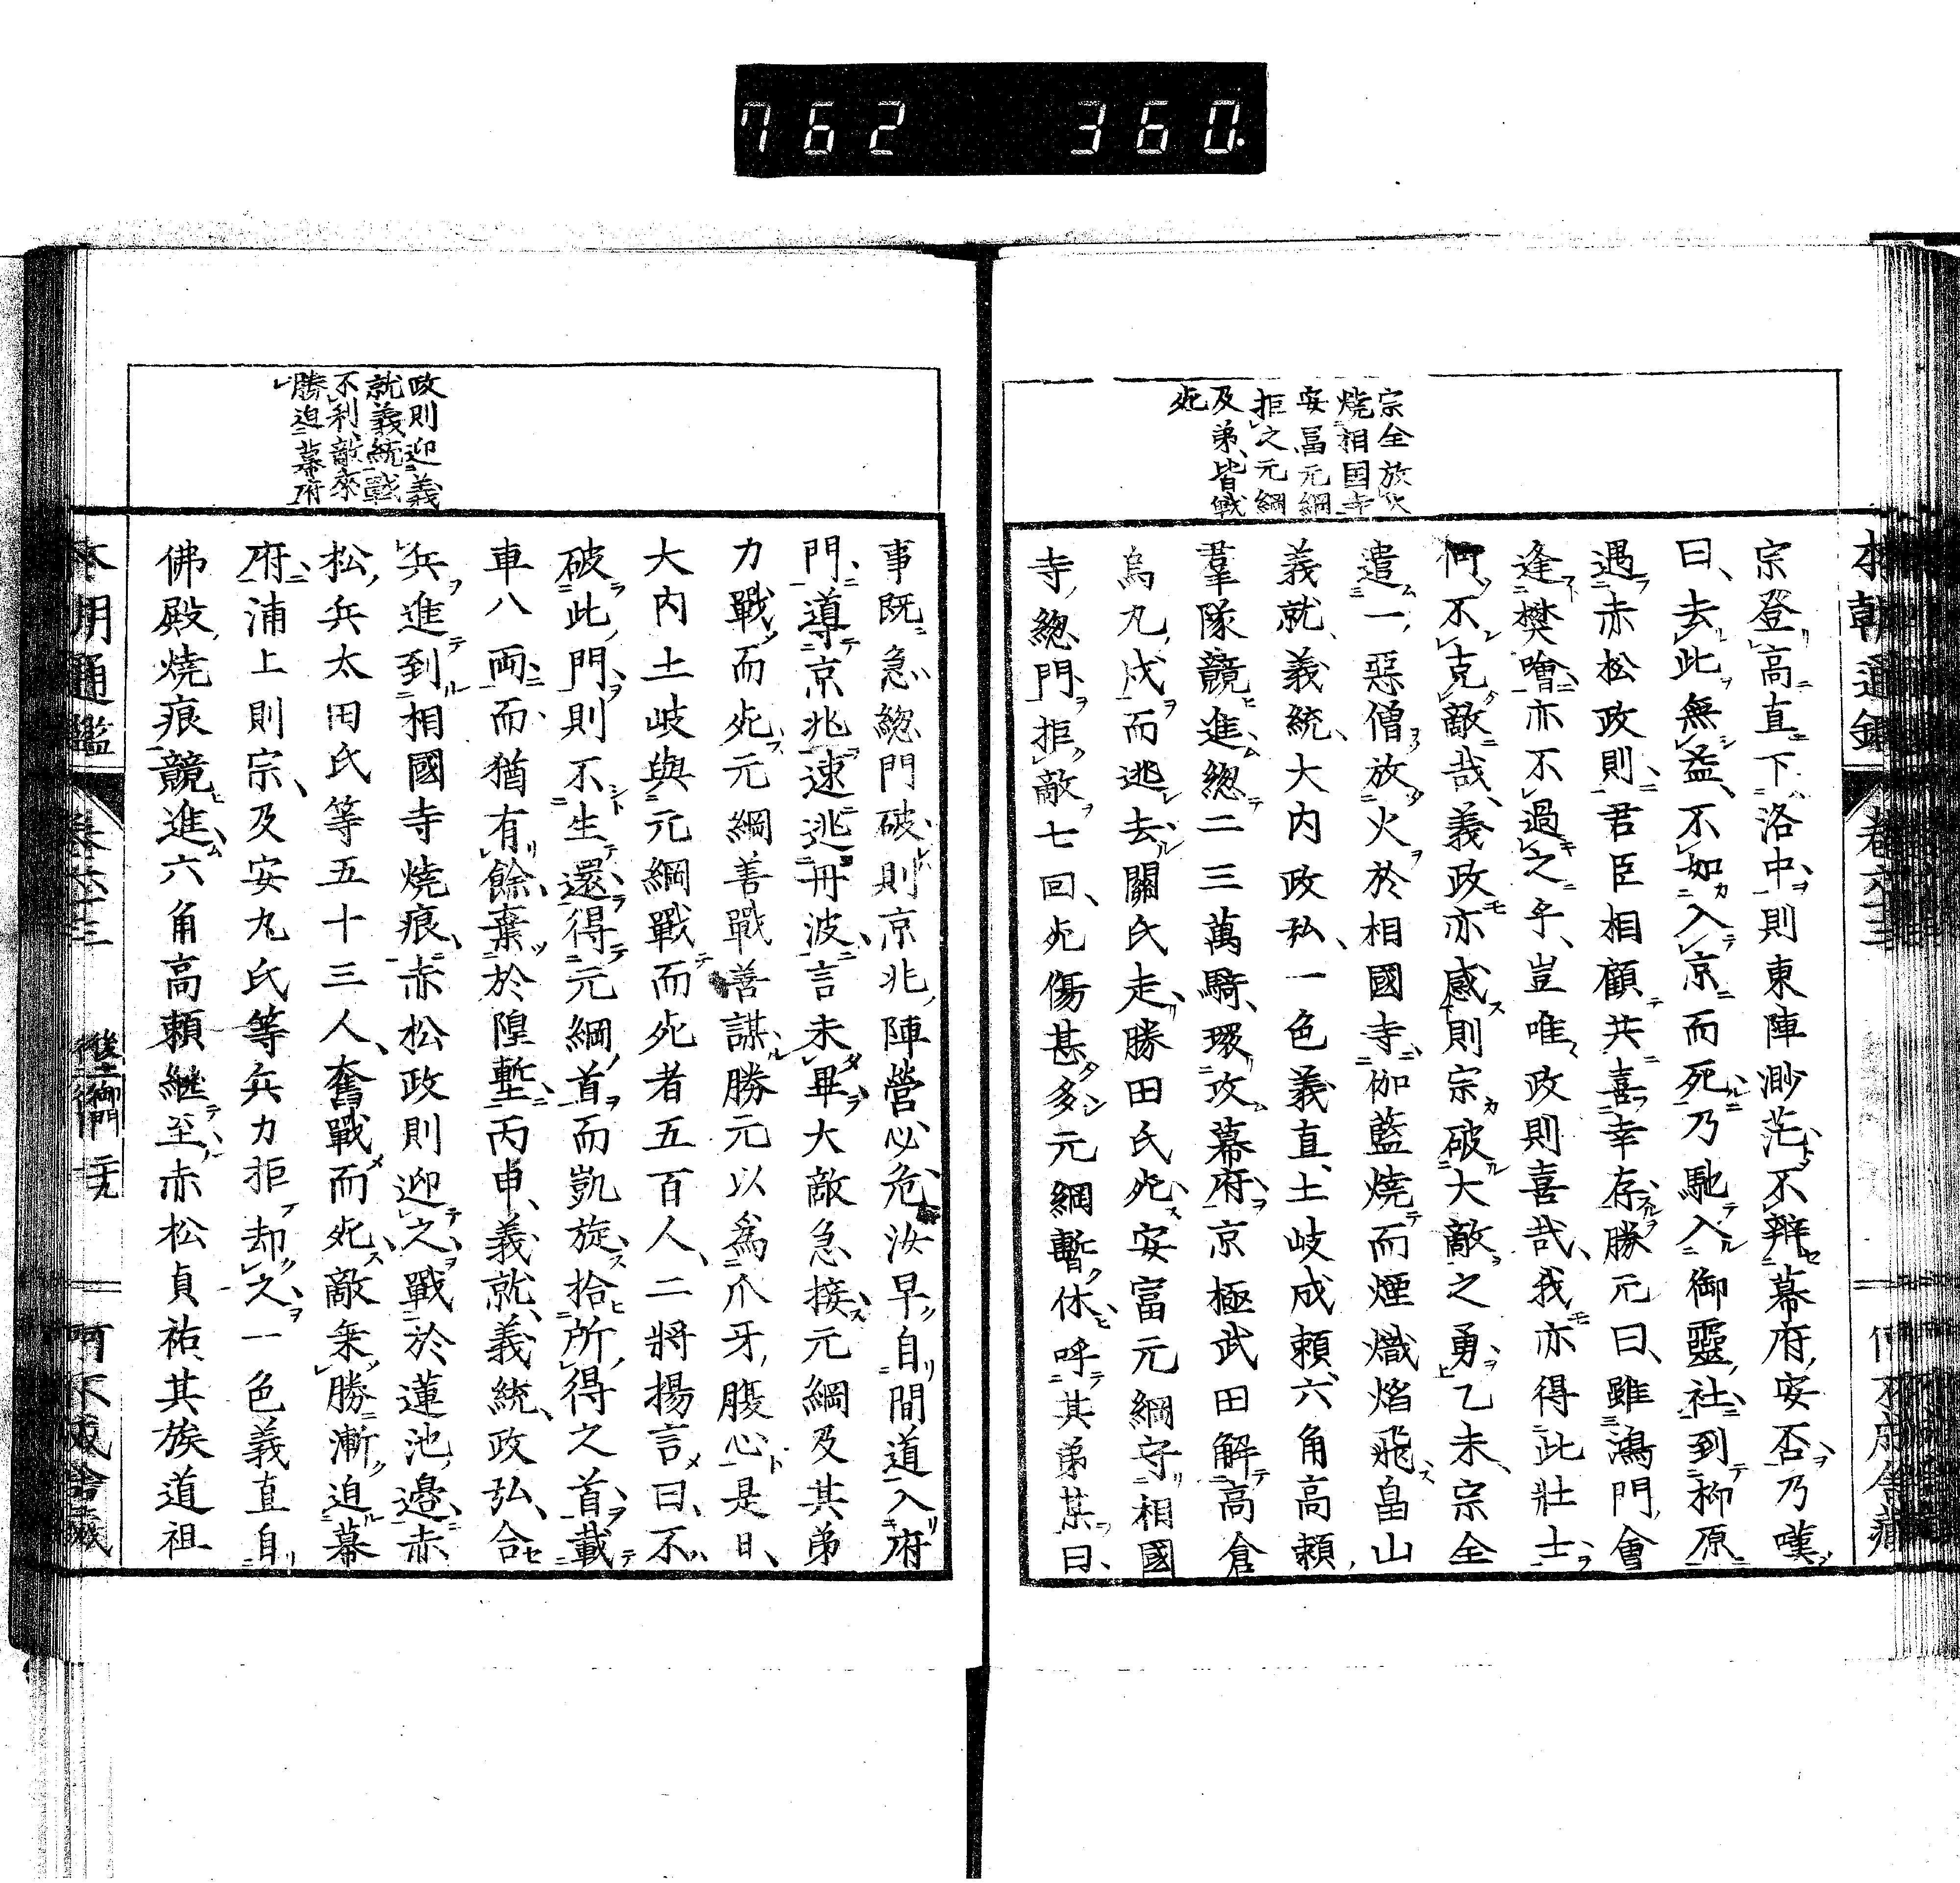 762 360
本朝通鑑 卷六十三
宗全放火
燒相國寺
安富元綱
拒之元綱
及弟皆戰
死
宗登高直下洛中則東陣渺茫不辨幕府安否乃嘆
曰去此無益不如入京而死乃馳入御靈社到柳原
遇赤松政則君臣相顧共喜幸存勝元曰雖鴻門會
逢樊噲亦不過之乎豈唯政則喜哉我亦得此壯士
何不克敵哉義政亦感則宗破大敵之勇乙未宗全
遣一惡僧放火於相國寺伽藍燒而煙熾焰飛畠山
義就義統大內政弘一色義直土岐成賴六角高賴
羣隊競進總二三萬騎環攻幕府京極武田解高倉
烏丸戍而逃去關氏走勝田氏死安富元綱守相國
寺總門拒敵七回死傷甚多元綱暫休呼其弟某曰
政則迎義
就義統戰
不利敵來
勝迫幕府
事既急總門破則京兆陣營必危汝早自間道入府
門導京兆速逃丹波言未畢大敵急接元綱及其弟
力戰而死元綱善戰善謀勝元以爲爪牙腹心是日
大內土岐與元綱戰而死者五百人二將揚言曰不
破此門則不生還得元綱首而凱旋拾所得之首載
車八兩而猶有餘棄於隍塹丙申義就義統政弘合
兵進到相國寺燒痕赤松政則迎之戰於蓮池邊赤
松兵太田氏等五十三人奮戰而死敵乘勝漸迫幕
府浦上則宗及安丸氏等兵力拒却之一色義直自
佛殿燒痕競進六角高賴繼至赤松貞祐其族道祖
本朝通鑑 卷六十三 後土御門 二十九